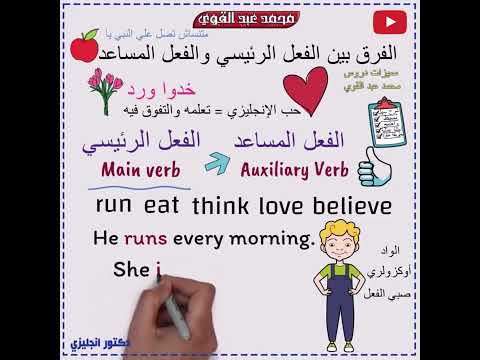 محمد عبد القوي
متنساش تصل علي النبي يا
الفرق بين الفعل الرئيسي والفعل المساعد
مميزات دروس
محمد عبد القوي
خدوا ورد
حب الإنجليزي = تعلمه والتفوق فيه
الفعل الرئيسي
الفعل المساعد
Main verb
Auxiliary Verb
run eat think love believe
He runs every morning.
She i
الواد
أوكزولري
صبي الفعل
دكتور انجليزي